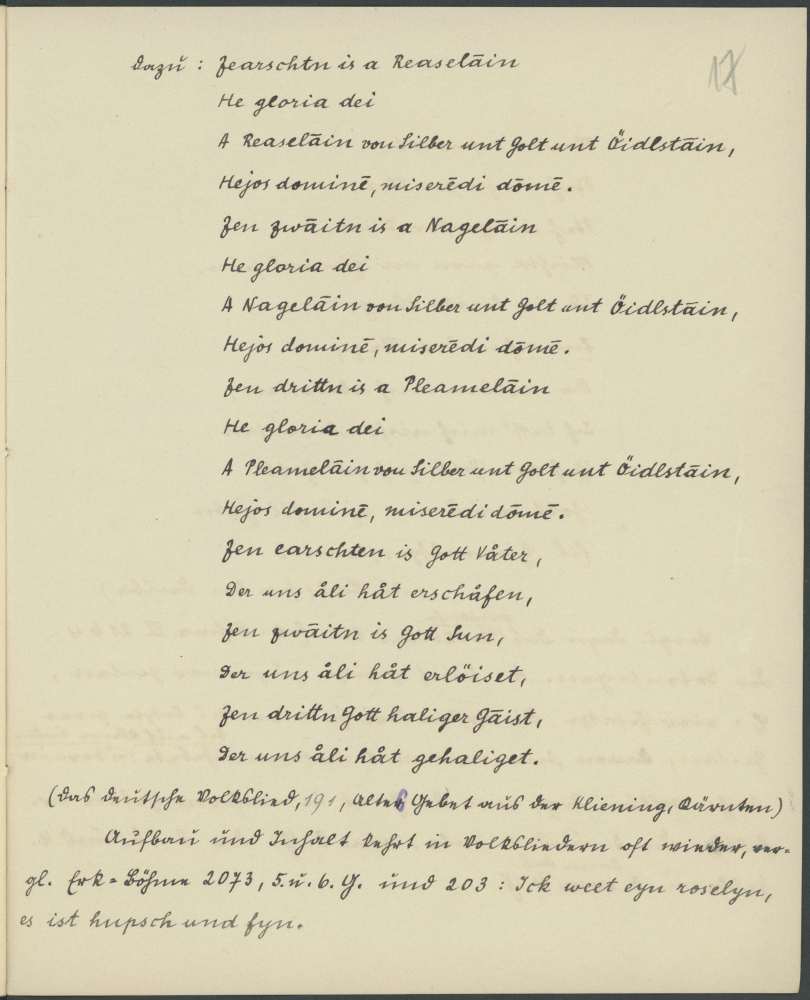 17
Dazu : Zearschtn is a Reaselāin
He gloria dei
A Reaselāin von Silber unt Golt unt Öidlstāin,
Hejos dominē, miserēdi dōmē.
Zen zwāitn is a Nagelāin
He gloria dei
A Nagelāin von Silber unt Golt unt Öidlstāin,
Hejos dominē, miserēdi dōmē.
Zen drittn is a Pleamelāin
He gloria dei
A Pleamelāin von Silber unt Golt unt Öidlstāin,
Hejos dominē, miserēdi dōmē.
Zen earschten is Gott Våter,
Der uns åli håt erschåfen,
Zen zwāitn is Gott Sun,
Der uns åli håt erlöiset,
Zen drittn Gott haliger Gāist,
Der uns åli håt gehaliget.
(Das deutsche Volkslied, 191, Gebet aus der Kliening, Kärnten)
Aufbau und Inhalt kehrt in Volksliedern oft wieder, ver-
gl. Erk=Böhme 2073, 5. u. 6. G. und 203 : Ick weet eyn roselyn,
es ist hupsch und fyn.